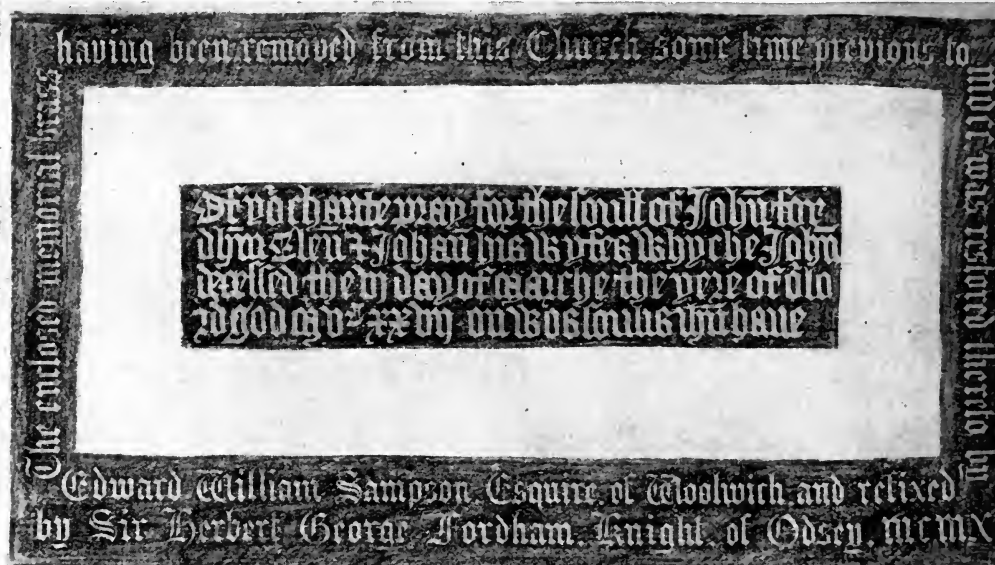 The enclosed memorial brass
having been removed from this Church some time previous to
was restored thereto by
Edward William Sampson Esquire of Woolwich and refixed
by Sir Herbert George Fordham, Knight, of Odsey, MCMX
Of yor charite pray for the soull of John fore
Elen & Johan his wyfes whyche John
decessed the vj day of marche the yere of or lo
rd god mvc xx vij on wos soulis ihu have